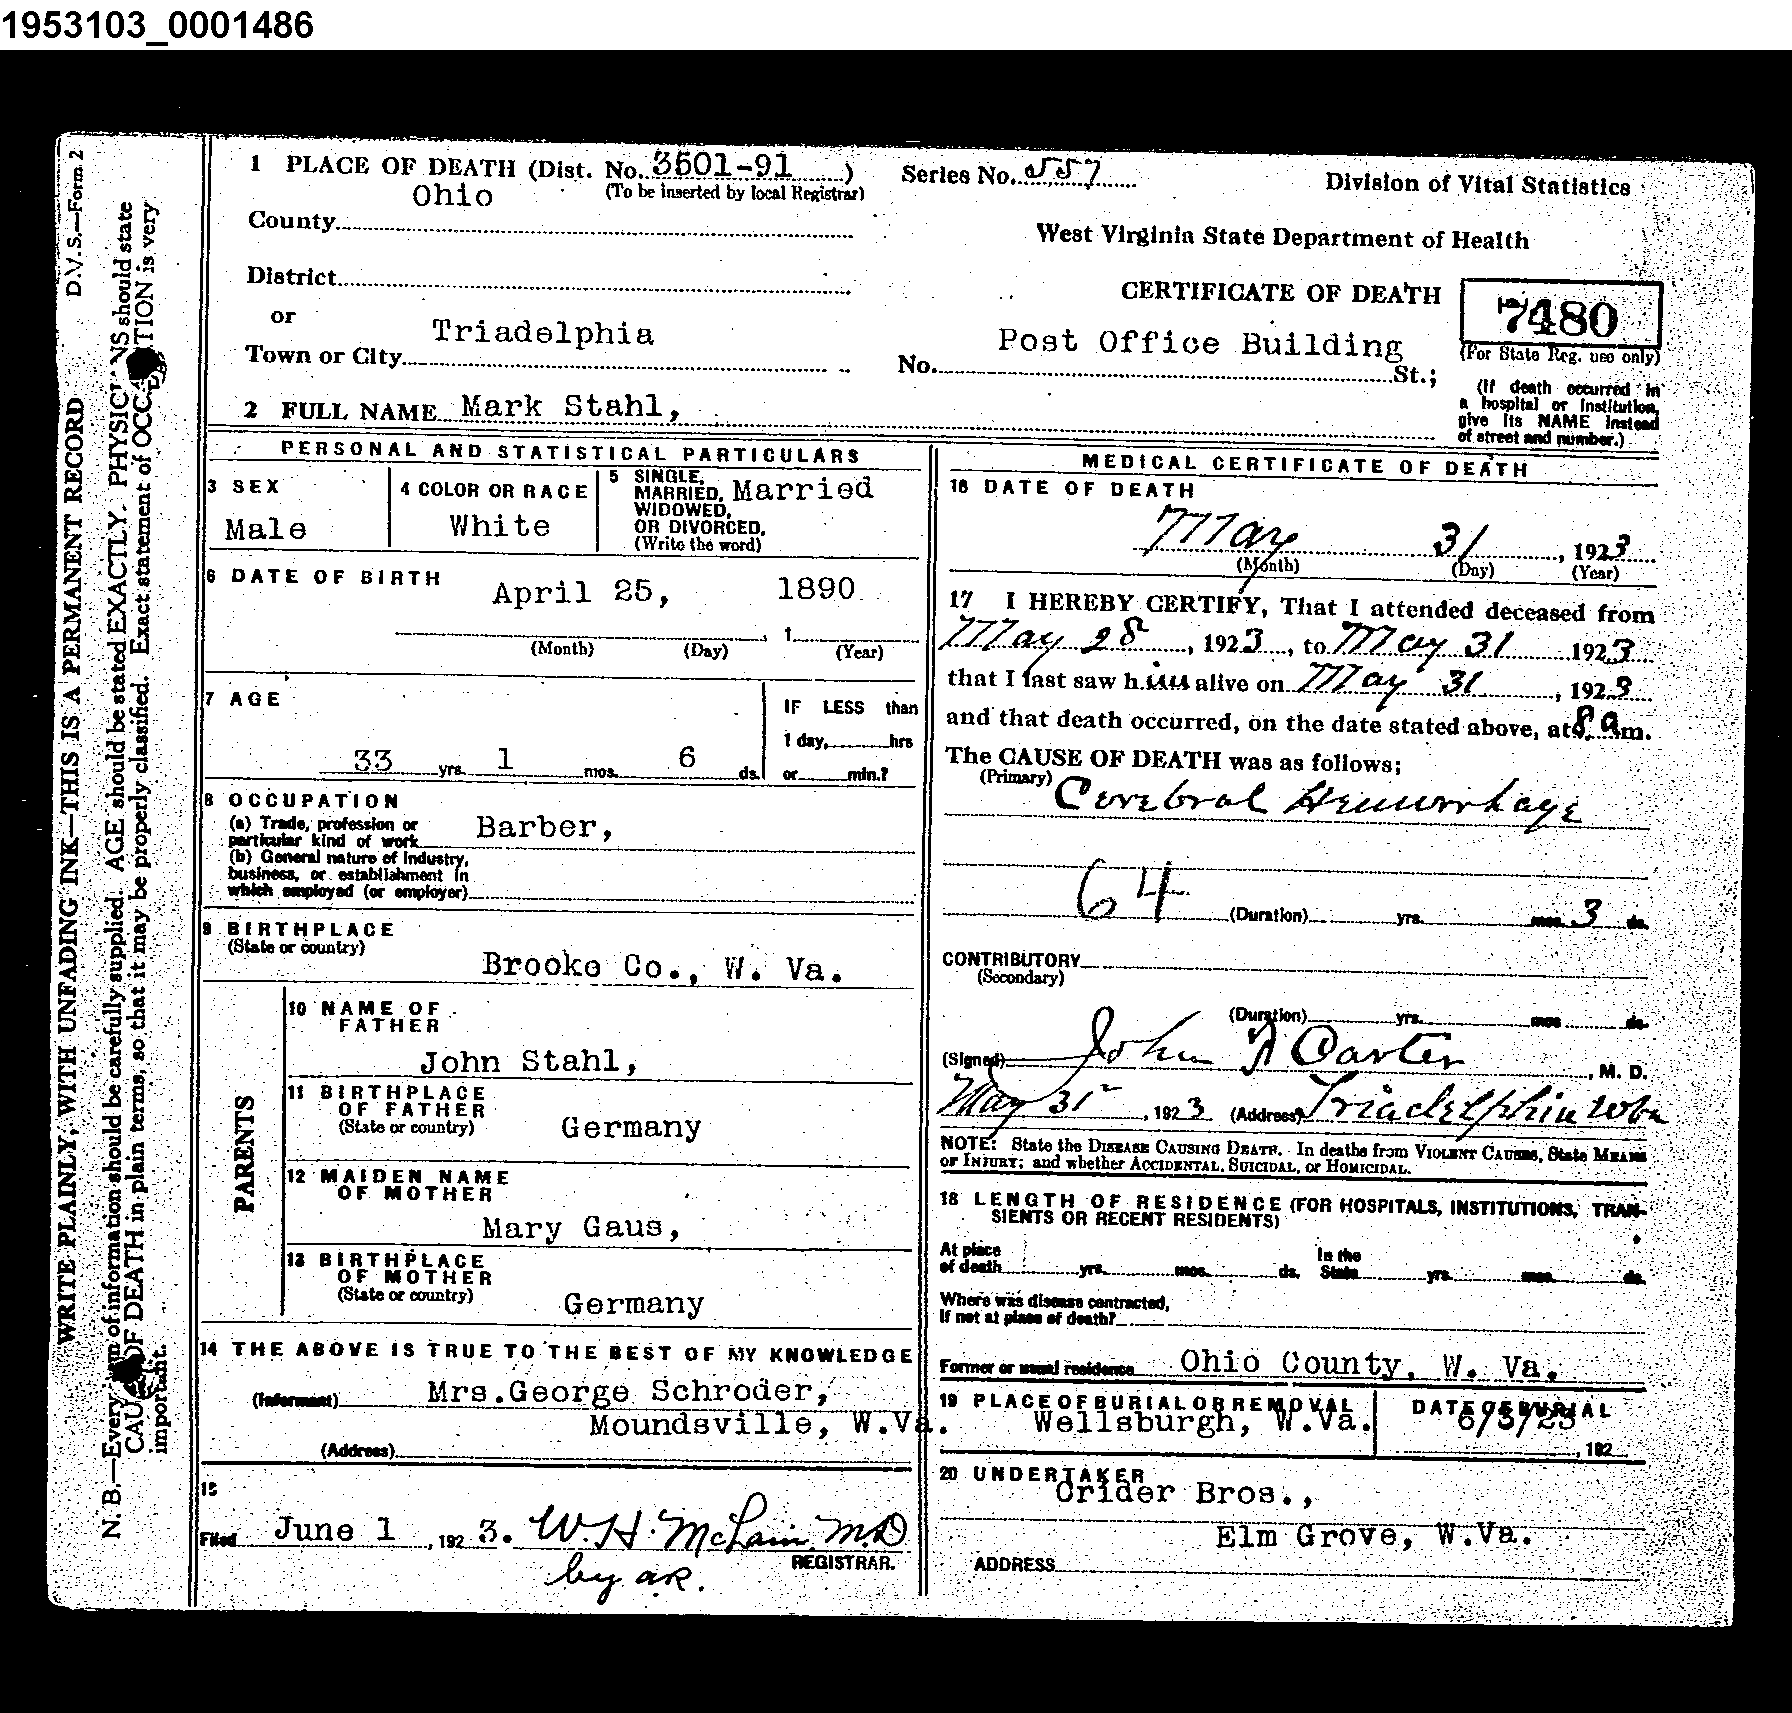 1953103_0001486
1 PLACE OF DEATH (Dist. No. 3501-91 ) Series No. 557 Division of Vital Statistics
(To be inserted by local Registrar)
County Ohio
West Virginia State Department of Health
District
CERTIFICATE OF DEATH
7480
(For State Reg. use only)
or
Town or City Triadelphia No. Post Office Building St.;
(If death occurred in
a hospital or institution,
give its NAME instead
of street and number.)
2 FULL NAME Mark Stahl,
PERSONAL AND STATISTICAL PARTICULARS
3 SEX
Male
4 COLOR OR RACE
White
5 SINGLE,
MARRIED,
WIDOWED,
OR DIVORCED,
(Write the word)
Married
6 DATE OF BIRTH
April 25, 1890
, 1
(Month) (Day) (Year)
7 AGE
33 yrs. 1 mos. 6 ds.
IF LESS than
1 day, hrs
or min.?
8 OCCUPATION
(a) Trade, profession or
particular kind of work Barber,
(b) General nature of industry,
business, or establishment in
which employed (or employer)
9 BIRTHPLACE
(State or country)
Brooke Co., W. Va.
PARENTS
10 NAME OF
FATHER
John Stahl,
11 BIRTHPLACE
OF FATHER
(State or country) Germany
12 MAIDEN NAME
OF MOTHER
Mary Gaus,
13 BIRTHPLACE
OF MOTHER
(State or country) Germany
14 THE ABOVE IS TRUE TO THE BEST OF MY KNOWLEDGE
(Informant) Mrs.George Schroder,
Moundsville, W.Va.
(Address)
15
Filed June 1 , 1923. W.H. McLain, M.D
REGISTRAR.
by
MEDICAL CERTIFICATE OF DEATH
16 DATE OF DEATH
May 31 , 1923
(Month) (Day) (Year)
17 I HEREBY CERTIFY, That I attended deceased from
May 28 , 1923 , to May 31 1923
that I last saw him alive on May 31 , 1923
and that death occurred, on the date stated above, at 8 a.m.
The CAUSE OF DEATH was as follows;
(Primary) Cerebral Hemorrhage
64
(Duration) yrs. mos. 3 ds.
CONTRIBUTORY
(Secondary)
(Duration) yrs. mos. ds.
(Signed) John Carter , M. D.
May 31 , 1923 (Address) Triadelphia
NOTE: State the DISEASE CAUSING DEATH. In deaths from VIOLENT CAUSES, State MEANS
OF INJURY; and whether ACCIDENTAL, SUICIDAL, or HOMICIDAL.
18 LENGTH OF RESIDENCE (FOR HOSPITALS, INSTITUTIONS, TRAN-
SIENTS OR RECENT RESIDENTS)
At place
of death yrs. mos. ds.
In the
State yrs. mos. ds.
Where was disease contracted,
If not at place of death?
Former or usual residence Ohio County, W. Va.
19 PLACE OF BURIAL OR REMOVAL
Wellsburgh, W.Va.
DATE OF BURIAL
6/3/23
, 192
20 UNDERTAKER
Crider Bros.,
Elm Grove, W.Va.
ADDRESS
D.V.S.—Form 2
WRITE PLAINLY, WITH UNFADING INK—THIS IS A PERMANENT RECORD
N. B.—Every of information should be carefully supplied. AGE should be stated EXACTLY. PHYSICIANS should state
CAUSE OF DEATH in plain terms, so that it may be properly classified. Exact statement of OCCUPATION is very
important.